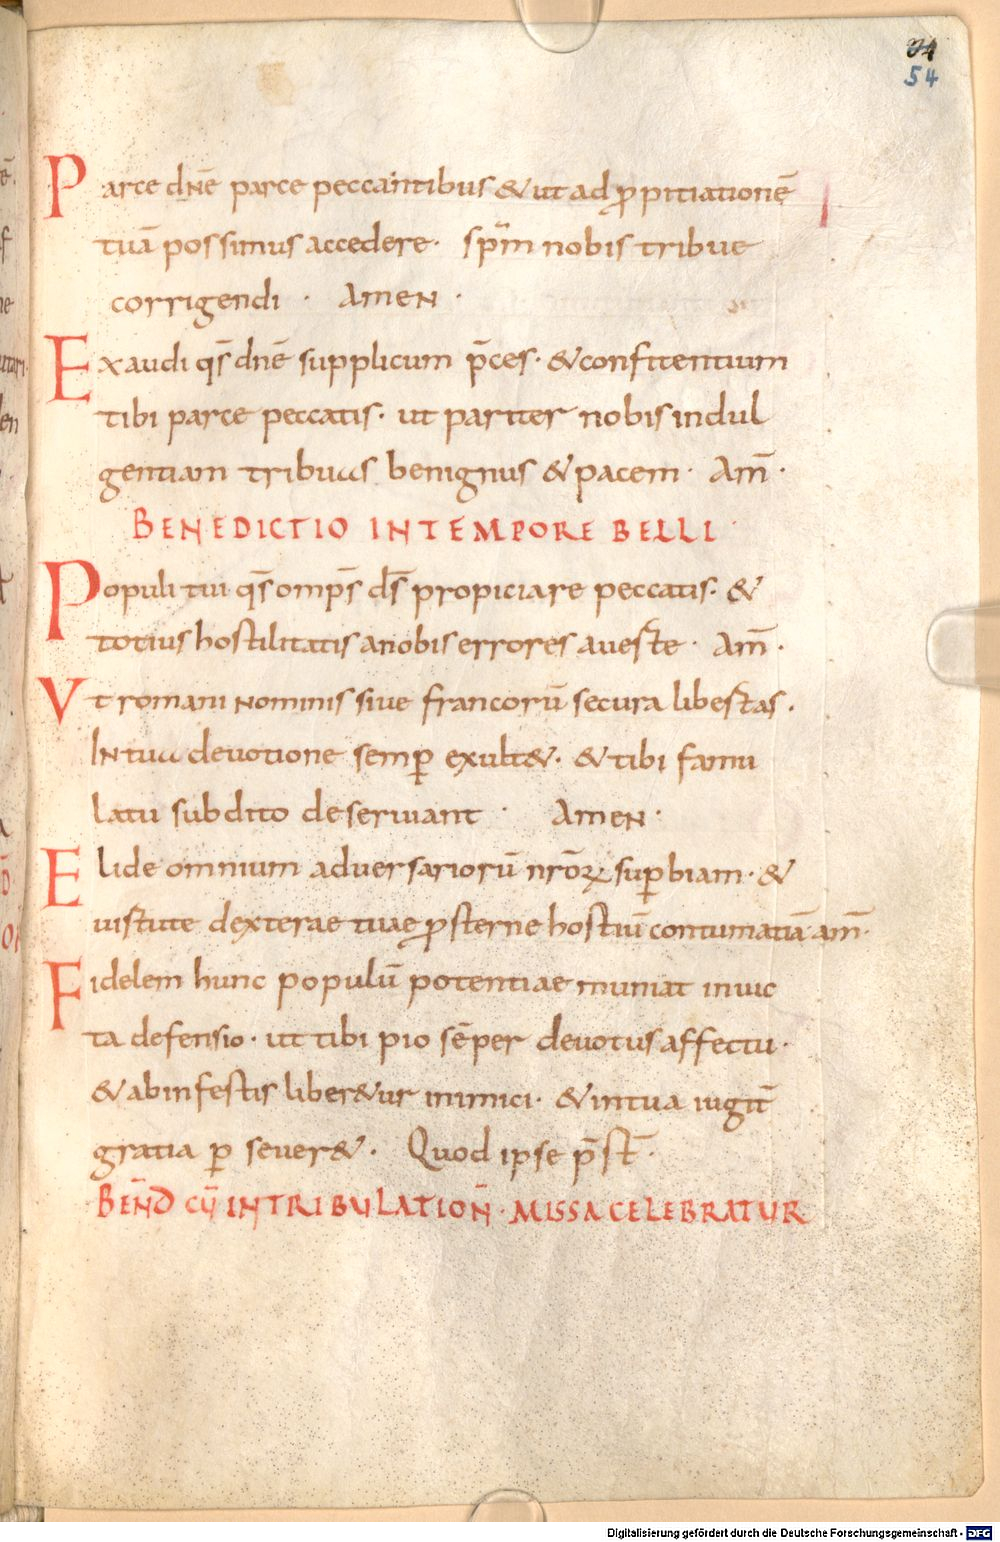 54
Parce dn̄e parce peccantibus & ut ad ꝓpitiationē
tuā possimus accedere. sp̄m nobis tribue
corrigendi . AmeN .
Exaudi qs̄ dn̄e supplicum p̄ces. & confitentium
tibi parce peccatis. ut pariter nobis indul
gentiam tribuas benignus & pacem. Am̄.
BENEDICTIO IN TEMPORE BELLI
Populi tui qs̄ omps̄ ds̄ propiciare peccatis. &
totius hostilitatis a nobis errores averte. Am̄.
Vt romani Nominis sive francorū secura libertas.
IN tua devotione semꝑ exult&. & tibi famu
latu subdito deserviant . AmeN.
Elide omnium adversariorū nr̄oꝝ suꝑbiam. &
virtute dexterae tuae ꝓsterne hostiū contumatiā am̄.
Fidelem hunc populū potentiae muniat invic
ta defensio. ut tibi pio sēper devotus affectu.
& ab infestis liber&ur inimici. & in tua iugit̄
gratia ꝑ sever&. Quod ipse p̄st̄.
BEN̄D CŪ IN TRIBULATION̄. MISSA CELEBRATUR
Digitalisierung gefördert durch die Deutsche Forschungsgemeinschaft - DFG